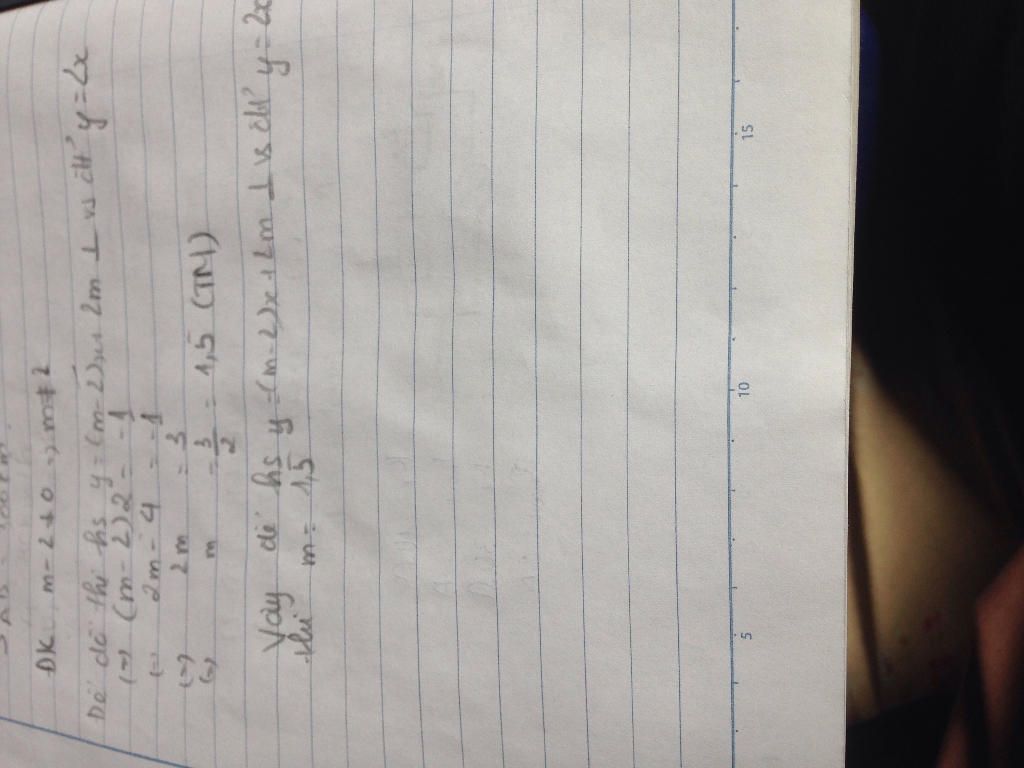 ĐK m-2≠0 => m≠2
Để đồ thị hs y=(m-2)x+2m ⊥ vs đtt' y=2x
(=) (m-2)2 = -1
(= 2m-4 = -1
(=) 2m = 3
(=) m = 3/2 = 1,5 (TM)
Vậy để hs y=(m-2)x+2m ⊥ vs đtt' y=2x
thì m= 1,5
5
10
15